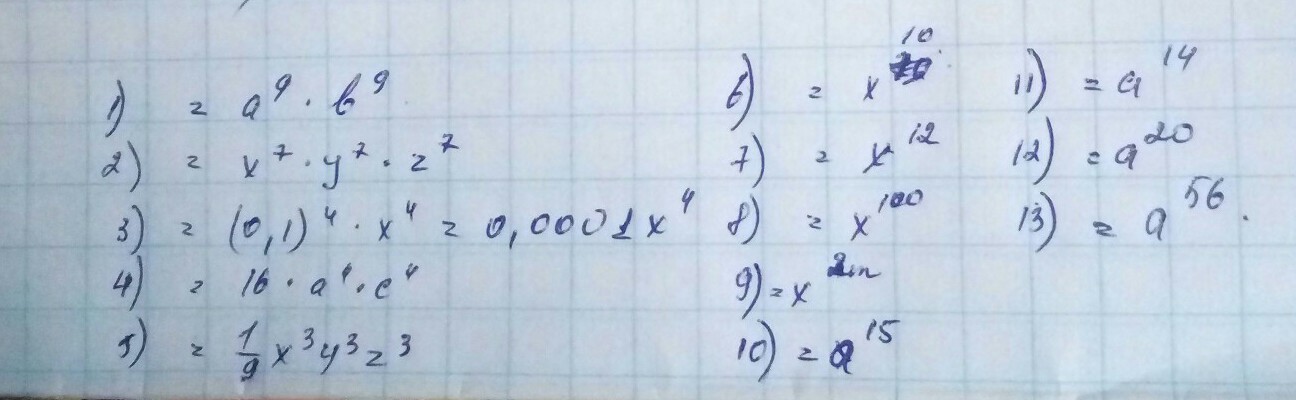 1) = a⁹ · b⁹
2) = x⁷ · y⁷ · z⁷
3) = (0,1)⁴ · x⁴ = 0,0001x⁴
4) = 16 · a⁴ · c⁴
5) = 1/9 x³y³z³
6) = x¹⁰
7) = x¹²
8) = x¹⁰⁰
9) = x²ᵐ
10) = a¹⁵
11) = a¹⁴
12) = a²⁰
13) = a⁵⁶.